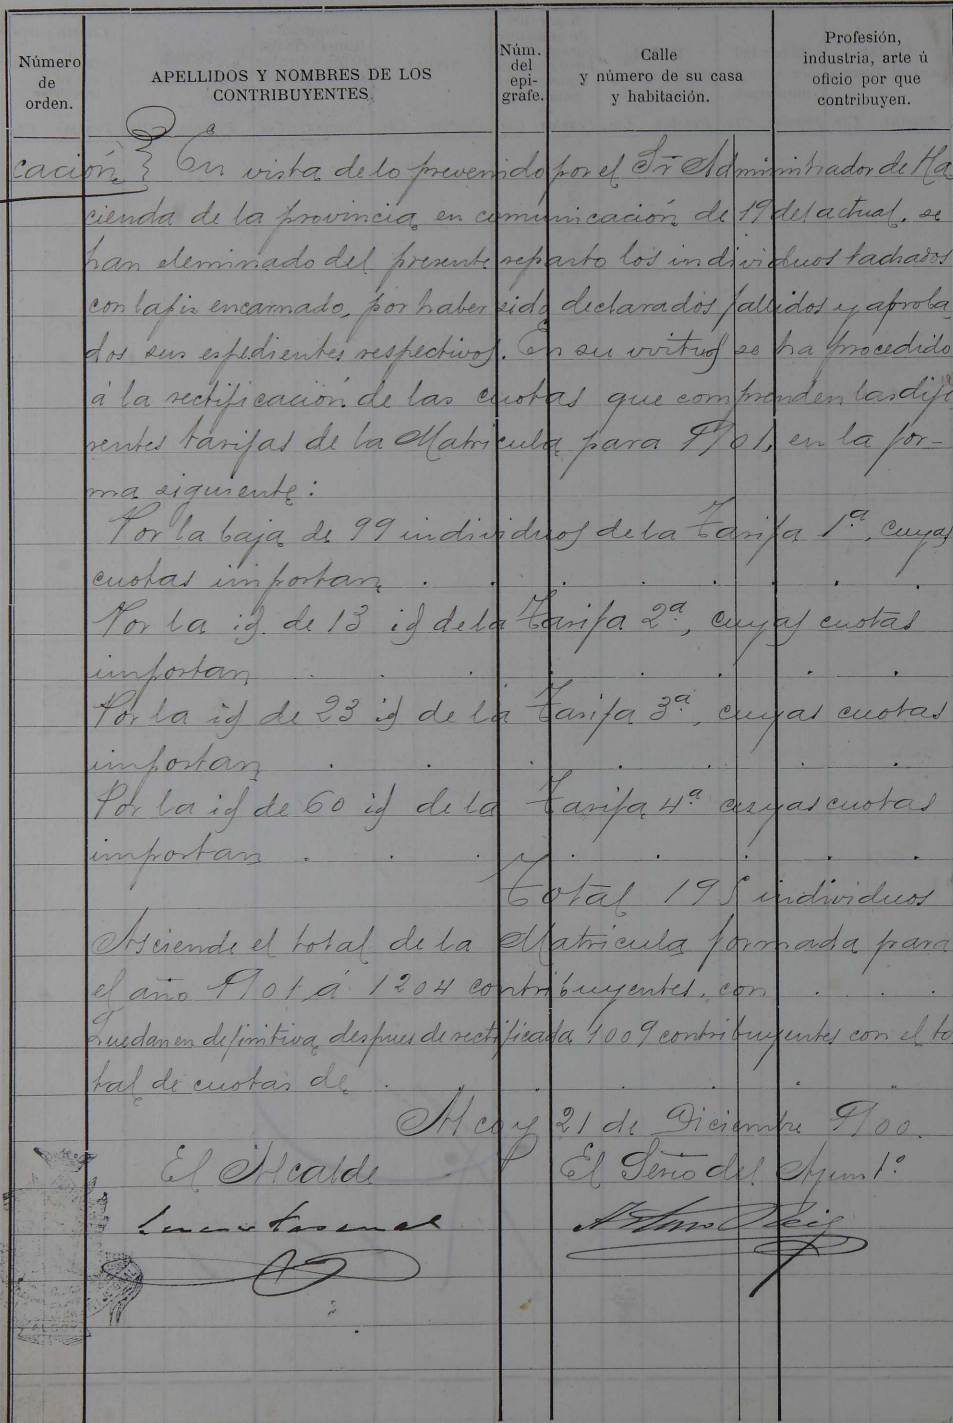 Número de orden.
APELLIDOS Y NOMBRES DE LOS CONTRIBUYENTES
Núm. del epi-grafe.
Calle y número de su casa y habitación.
Profesión, industria, arte ú oficio por que contribuyen.
cación } En vista de lo prevenido por el Sr Administrador de Ha
cienda de la provincia en comunicación de 19 del actual, se
han eleminado del presente reparto los individuos tachados
con lapiz encarnado, por haber sido declarados fallidos y aproba
dos sus espedientes respectivos. En su virtud se ha procedido
á la rectificación de las cuotas que comprenden las dife
rentes tarifas de la Matricula para 1901, en la for-
ma siguiente:
Por la baja de 99 individuos de la Tarifa 1ª, cuyas
cuotas importan . . . . . . .
Por la id. de 13 id de la Tarifa 2ª, cuyas cuotas
importan . . . . . . . .
Por la id de 23 id de la Tarifa 3ª, cuyas cuotas
importan . . . . . . .
Por la id de 60 id de la Tarifa 4ª cuyas cuotas
importan . . . . . . . .
Total 195 individuos
Asciende el total de la Matricula formada para
el año 1901 á 1204 contribuyentes, con . . .
Quedan en definitiva despues de rectificada 1009 contribuyentes con el to
tal de cuotas de . . . . . . .
Alcoy 21 de Diciembre 1900.
El Alcalde
El Serio del Ayunto.
Arturo Reig